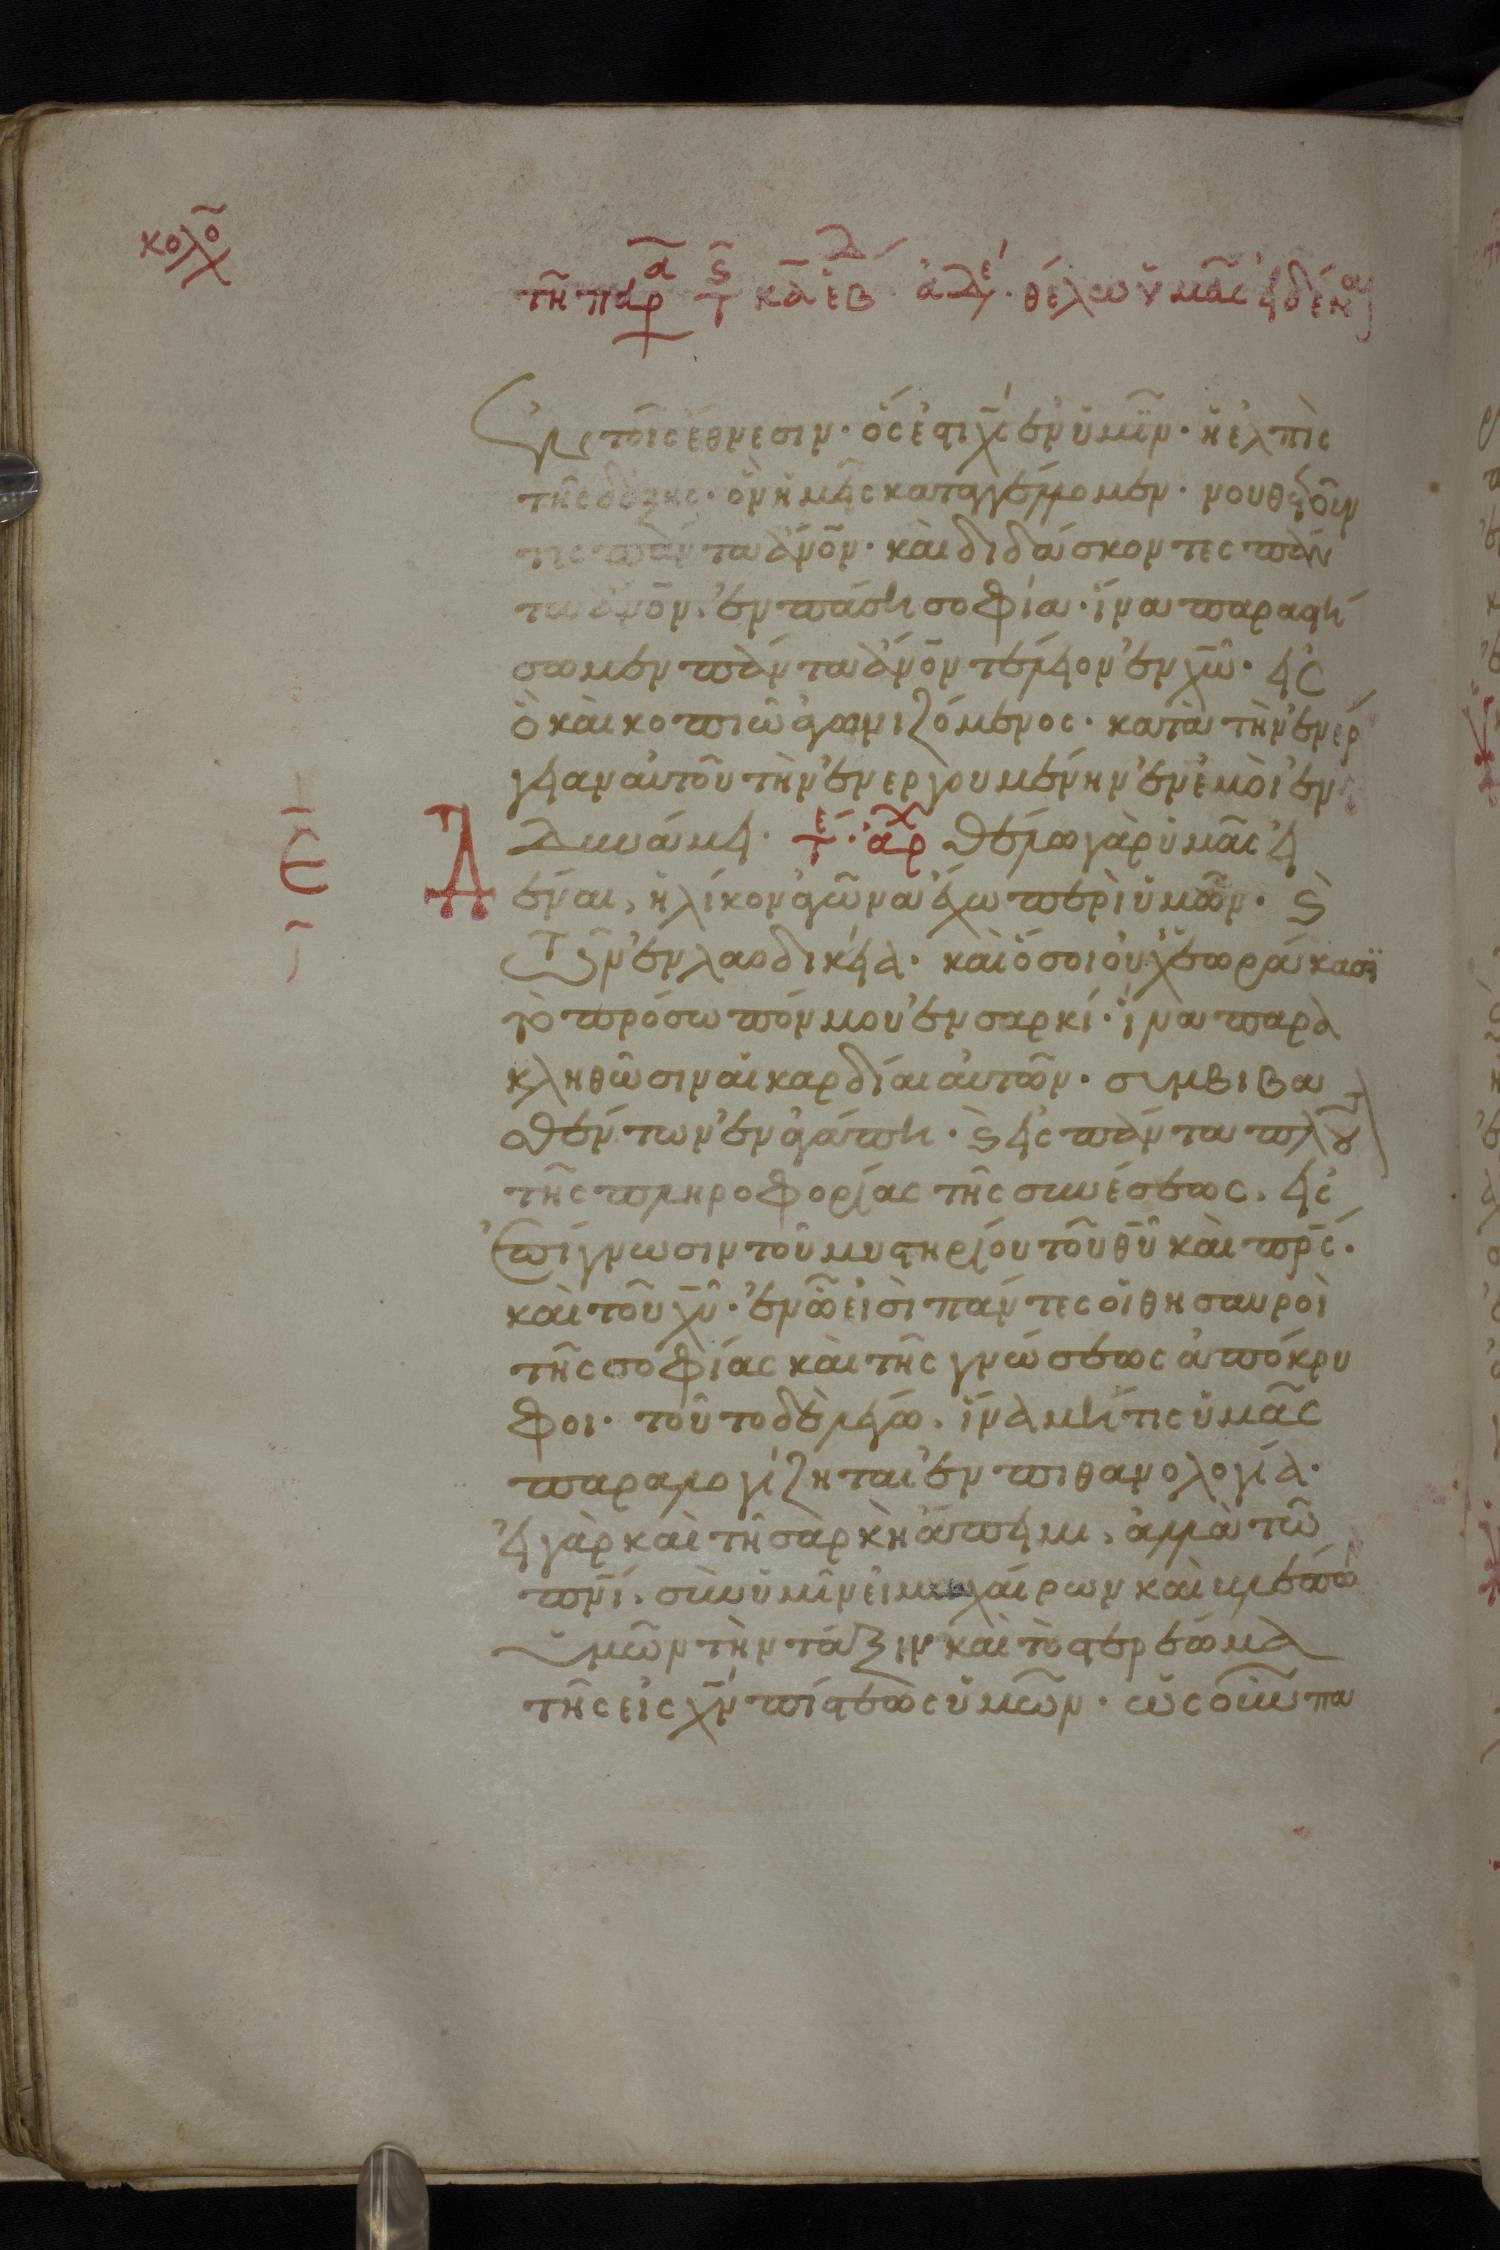 κολο̃χ
τῆ παρα ς τ κδ ἑβ ἀδελ. θέλω ὑμᾶς εἰδέναι
ἐν τοῖς ἔθνεσιν· ὅς ἐστι χς ἐν ὑμῖν· ἡ ἐλπὶς
τῆς δόξης· ὃν ἡμεῖς καταγγέλλομεν· νουθετοῦν
τες πάντα ἄνον· καὶ διδάσκοντες πάν
τα ἄνον, ἐν πάση σοφία· ἵνα παραστή
σωμεν πάντα ἄνον τέλειον ἐν χω· εἰς
ὃ καὶ κοπιῶ ἀγωνιζόμενος· κατὰ τὴν ἐνέρ
γειαν αὐτοῦ τὴν ἐνεργουμένην ἐν ἐμοὶ ἐν
δυνάμει. τε· ἀρχ θέλω γὰρ ὑμᾶς εἰ
Ε
δέναι, ἡλίκον ἀγῶνα ἔχω περὶ ὑμῶν· καὶ
τῶν ἐν λαοδικεία· καὶ ὅσοι οὐχ ἑωράκασι
τὸ πρόσωπόν μου ἐν σαρκί· ἵνα παρα
κληθῶσιν αἱ καρδίαι αὐτῶν· συμβιβα
σθέντων ἐν ἀγάπη· καὶ εἰς πάντα πλοῦτ
τῆς πληροφορίας τῆς συνέσεως, εἰς
ἐπίγνωσιν τοῦ μυστηρίου τοῦ θυ καὶ πρς·
καὶ τοῦ χυ· ἐν ὧ εἰσὶ πάντες οἱ θησαυροὶ
τῆς σοφίας καὶ τῆς γνώσεως ἀπόκρυ
φοι· τοῦτο δὲ λέγω, ἵνα μή τις ὑμᾶς
παραλογίζηται ἐν πιθανολογία·
εἰ γὰρ καὶ τῆ σαρκὶ ἄπειμι, ἀλλὰ τῶ
πνι, σὺν ὑμῖν εἰμι χαίρων καὶ βλέπων
ὑμῶν τὴν τάξιν καὶ τὸ στερέωμα
τῆς εἰς χν πίστεως ὑμῶν· ὡς οὖν πα